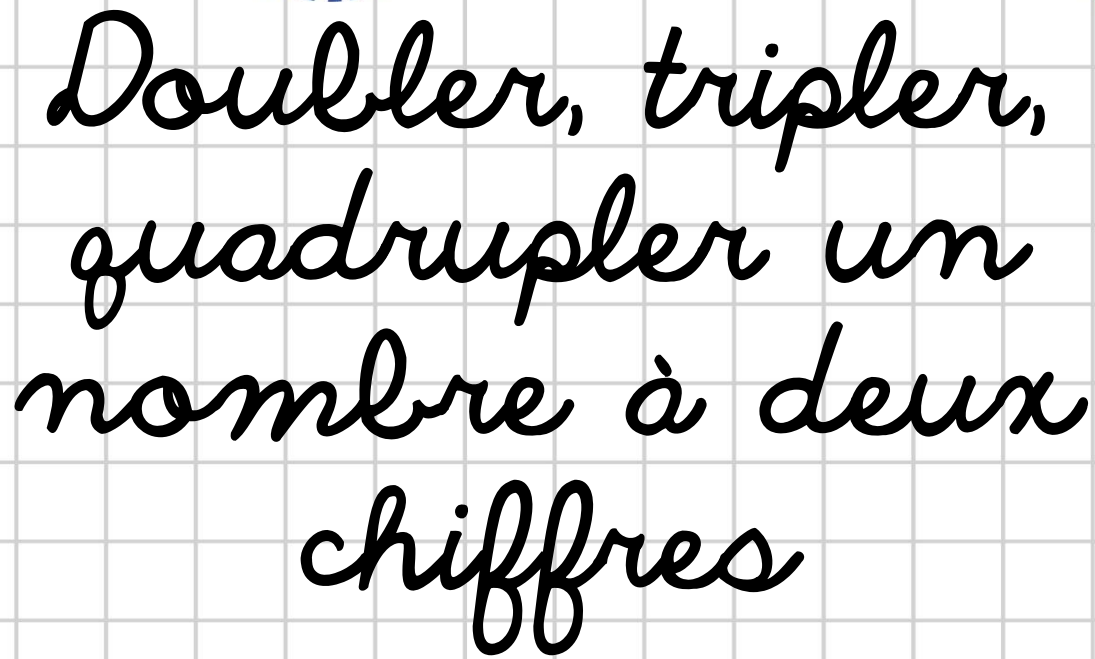 Doubler, tripler,
quadrupler un
nombre à deux
chiffres